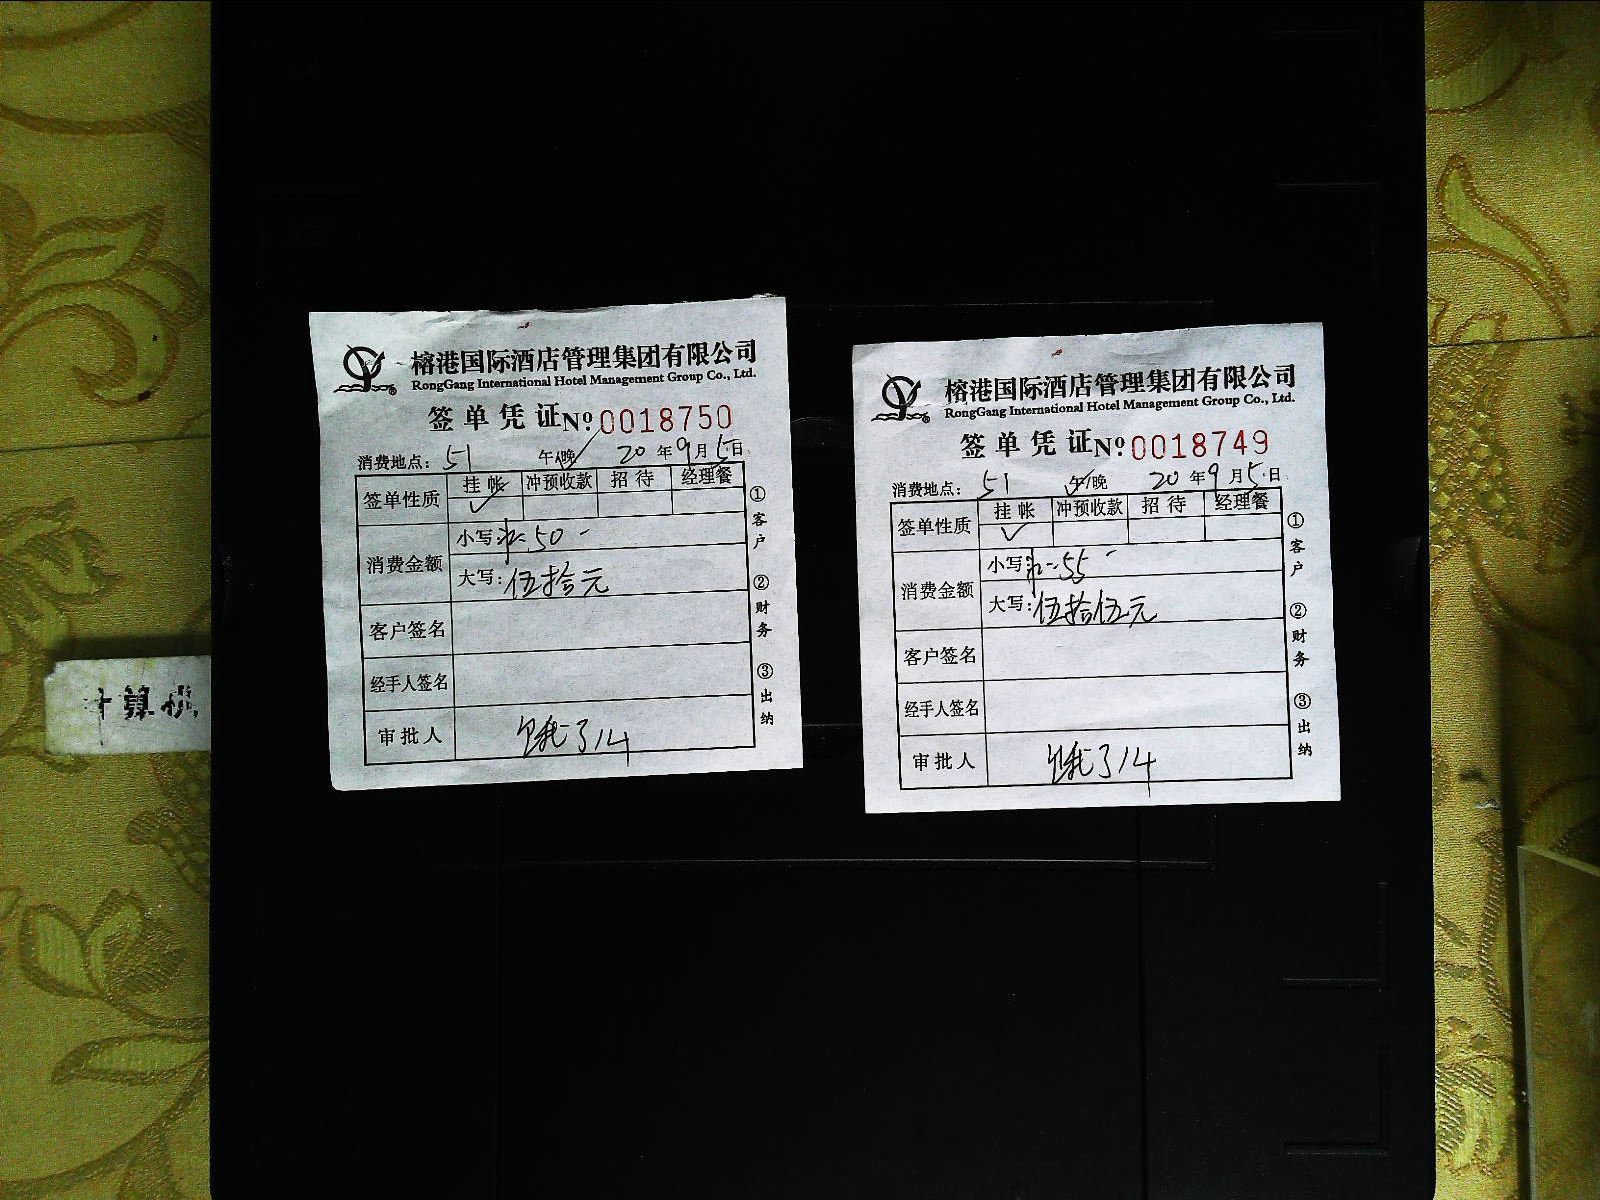 榕港国际酒店管理集团有限公司
RongGang International Hotel Management Group Co., Ltd.
签单凭证 Nº 0018750
消费地点: 51 午/晚 20年9月5日
签单性质 挂帐 冲预收款 招待 经理餐
消费金额 小写 50-
大写: 伍拾元
客户签名
经手人签名
审批人 饿了14
①客户 ②财务 ③出纳
榕港国际酒店管理集团有限公司
RongGang International Hotel Management Group Co., Ltd.
签单凭证 Nº 0018749
消费地点: 51 午/晚 20年9月5日
签单性质 挂帐 冲预收款 招待 经理餐
消费金额 小写 55-
大写: 伍拾伍元
客户签名
经手人签名
审批人 饿了14
①客户 ②财务 ③出纳
计算机